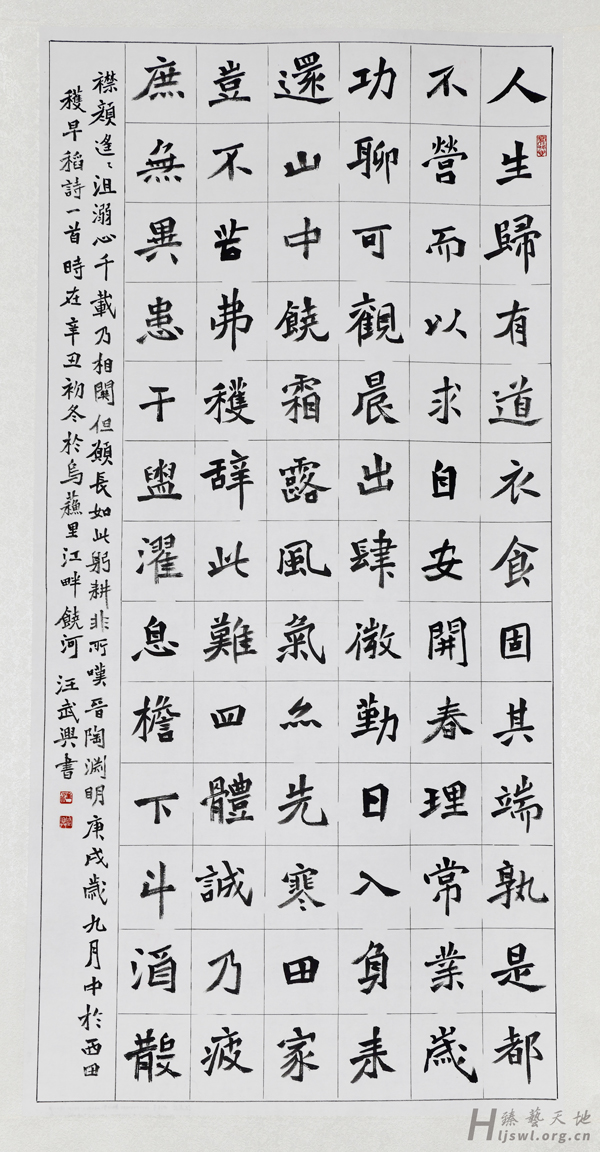 人生歸有道衣食固其端孰是都
不營而以求自安開春理常業歲
功聊可觀晨出肆微勤日入負耒
還山中饒霜露風氣亦先寒田家
豈不苦弗穫辭此難四體誠乃疲
庶無異患干盥濯息檐下斗酒散
襟顏遙〻沮溺心千載乃相關但願長如此躬耕非所嘆晉陶淵明庚戌歲九月中於西田
穫早稻詩一首時在辛丑初冬於烏蘇里江畔饒河 汪武興書
臻藝天地
Hljswl.org.cn